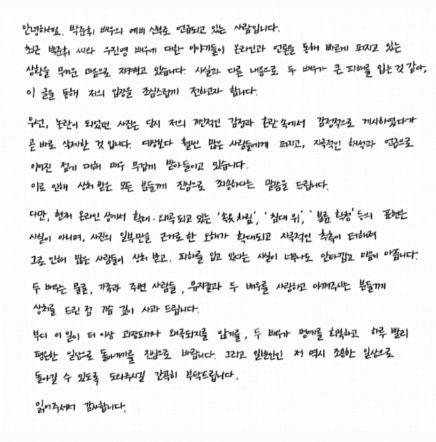 안녕하세요. 박준휘 배우의 예비 신부로 언급되고 있는 사람입니다.
최근 박준휘 씨와 우진영 배우에 대한 이야기들이 온라인과 언론을 통해 빠르게 퍼지고 있는
상황을 무거운 마음으로 지켜보고 있습니다. 사실과 다른 내용으로 두 배우가 큰 피해를 입는 것 같아,
이 글을 통해 저의 입장을 조심스럽게 전하고자 합니다.
우선, 논란이 되었던 사진은 당시 저의 개인적인 감정과 혼란 속에서 감정적으로 게시하였다가
곧 바로 삭제한 것 입니다. 예상보다 훨씬 많은 사람들에게 퍼지고, 자극적인 해석과 언급으로
이어진 점에 대해 매우 무겁게 받아들이고 있습니다.
이로 인해 상처 받은 모든 분들께 진심으로 죄송하다는 말씀을 드립니다.
다만, 현재 온라인 상에서 확대·왜곡 되고 있는 '속옷 차림', '침대 위', '불륜 현장' 등의 표현은
사실이 아니며, 사진의 일부만을 근거로 한 오해가 확대되고 자극적인 추측이 더해져
그로 인해 많은 사람들이 상처 받고, 피해를 입고 있다는 사실이 너무나도 안타깝고 마음이 아픕니다.
두 배우는 물론, 가족과 주변 사람들, 뮤지컬과 두 배우를 사랑하고 아껴주시는 분들께
상처를 드린 점 깊이 사과 드립니다.
부디 이 일이 더 이상 과장되거나 왜곡되지를 않기를, 두 배우가 명예를 회복하고 하루 빨리
평온한 일상으로 돌아가기를 진심으로 바랍니다. 그리고 일반인인 저 역시 조용한 일상으로
돌아갈 수 있도록 도와주시길 간곡히 부탁드립니다.
읽어주셔서 감사합니다.